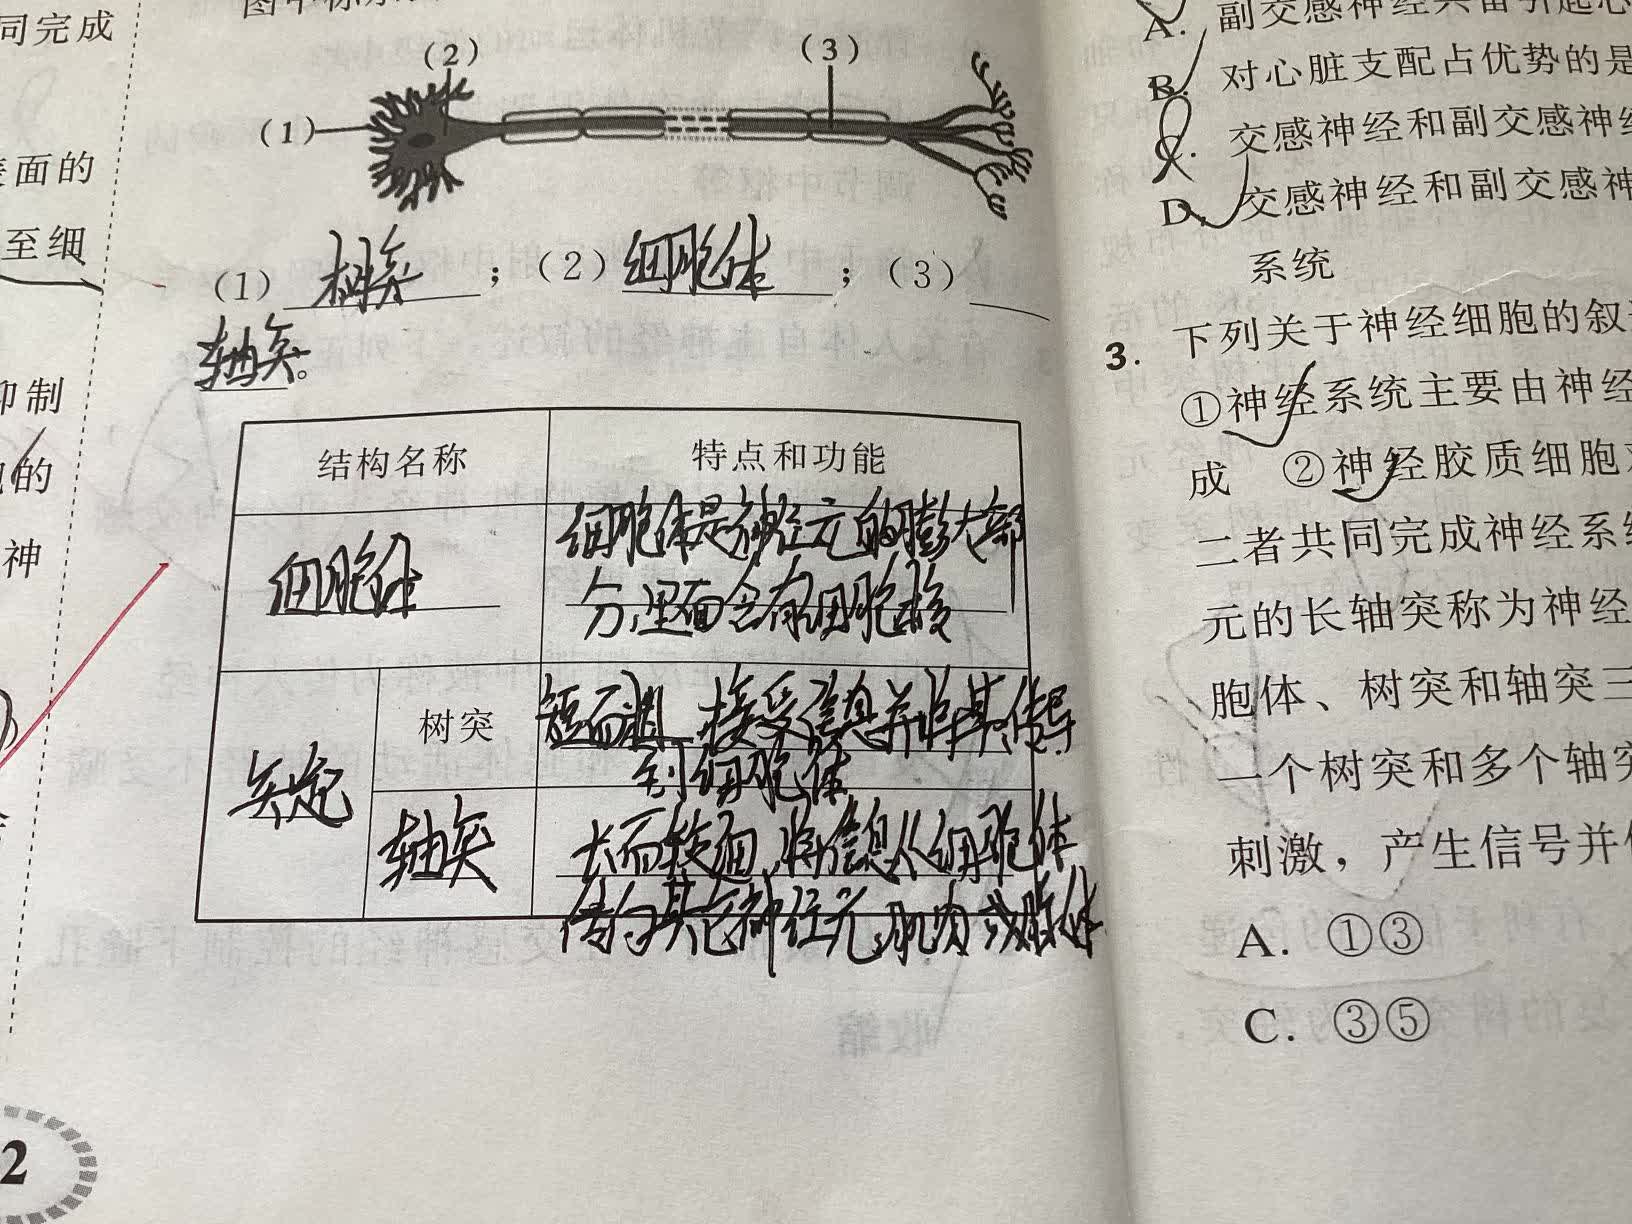 同完成
面的
至细
抑制
的
神
2
(2)
(3)
(1)
(1) 树突 ；(2) 细胞体 ；(3)
轴突。
结构名称 特点和功能
细胞体 细胞体是神经元的膨大部
分,里面含有细胞核
突起 树突 短而粗 接受信息并将其传导
到细胞体
轴突 长而较细,将信息从细胞体
传向其他神经元,肌肉或腺体
A. 副交感神经兴奋引起心
B. 对心脏支配占优势的是
C. 交感神经和副交感神经
D. 交感神经和副交感神
系统
3. 下列关于神经细胞的叙
①神经系统主要由神经
成 ②神经胶质细胞
二者共同完成神经系
元的长轴突称为神经
胞体、树突和轴突三
一个树突和多个轴突
刺激，产生信号并
A. ①③
C. ③⑤